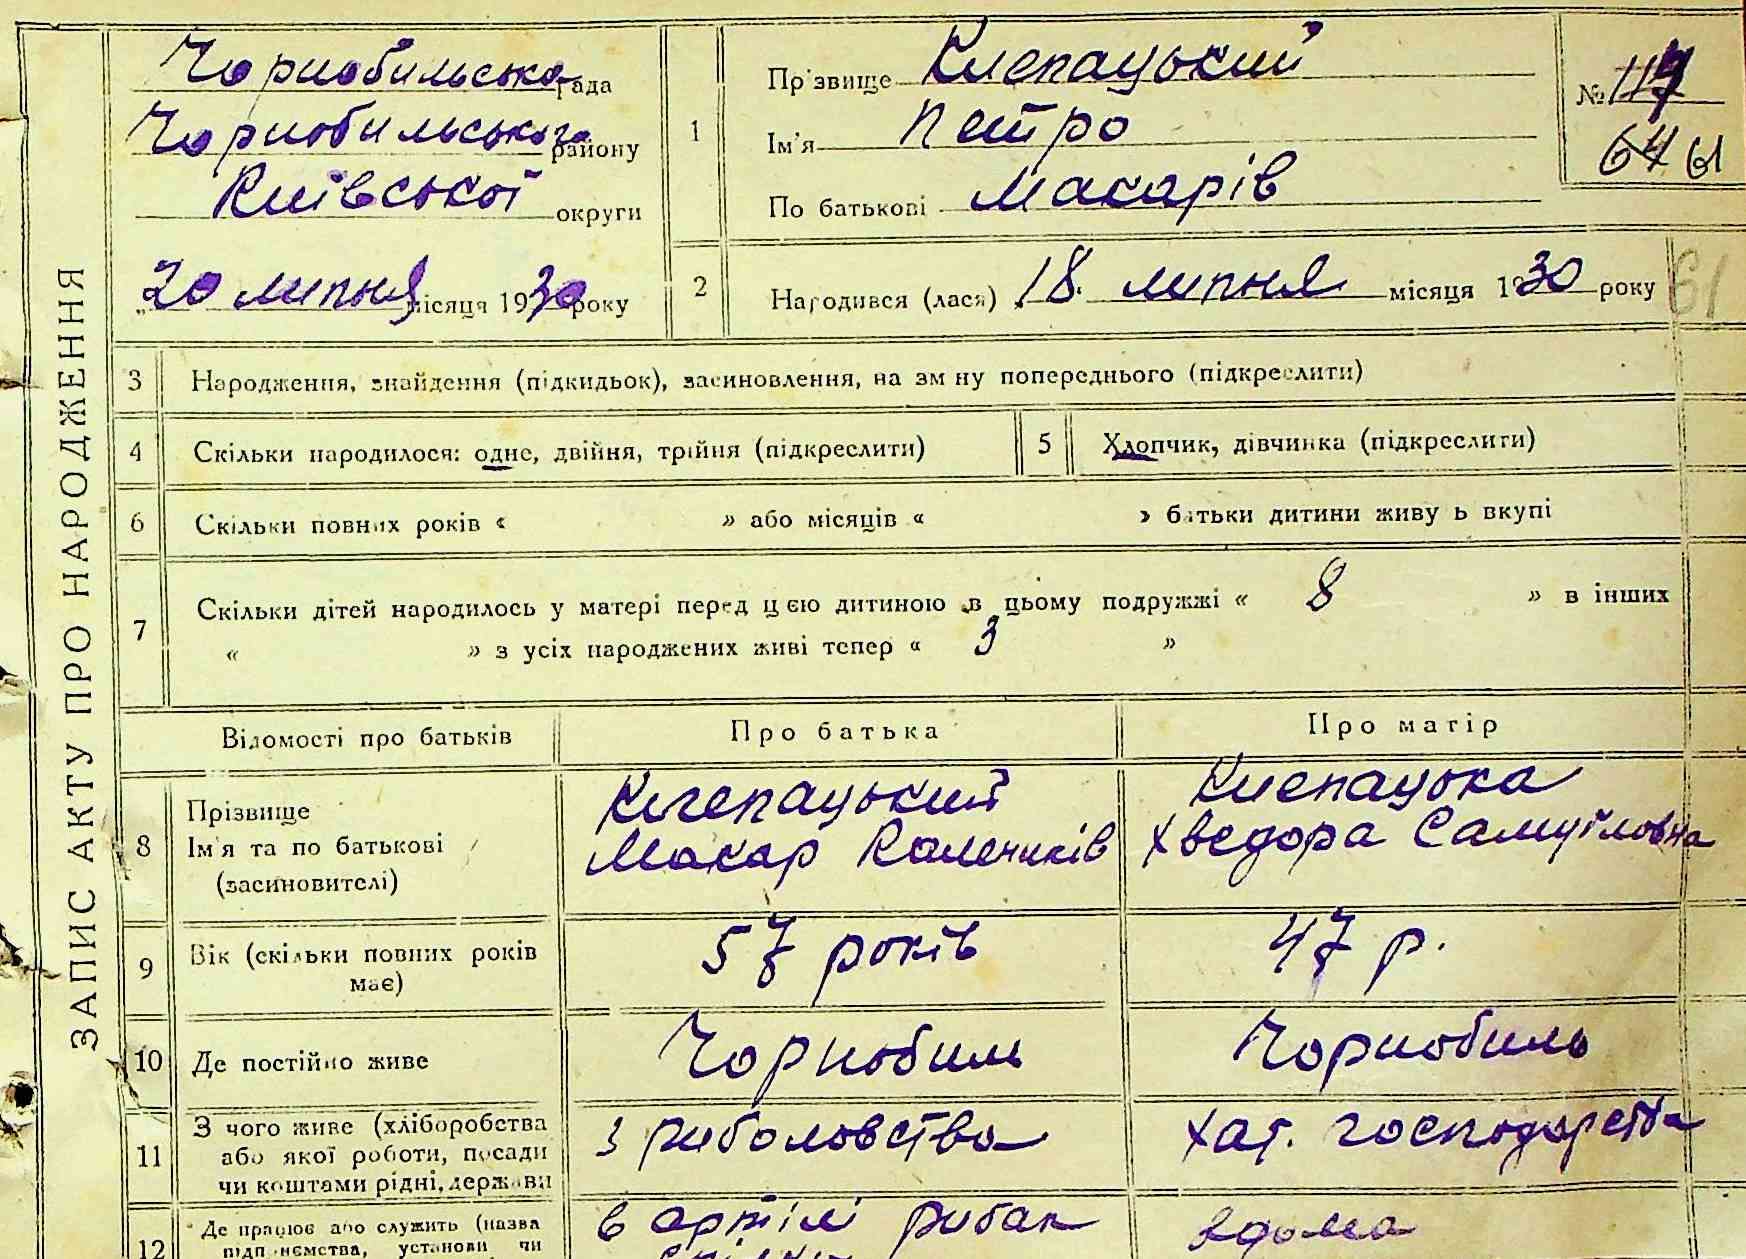 ЗАПИС АКТУ ПРО НАРОДЖЕННЯ
Чорнобильська рада
Чорнобильського району
Київської округи
„20 липня місяця 1930 року
1
Прізвище Клепацький
Ім'я Петро
По батькові Макарів
№ 117
64 61
2
Народився (лася) 18. липня місяця 1930 року
61
3 Народження, знайдення (підкидьок), засиновлення, на зм ну попереднього (підкреслити)
4 Скільки народилося: одне, двійня, трійня (підкреслити)
5 Хлопчик, дівчинка (підкреслити)
6 Скільки повних років « » або місяців « » батьки дитини живу ь вкупі
7 Скільки дітей народилось у матері перед цією дитиною в цьому подружжі « 8 » в інших
« » з усіх народжених живі тепер « 3 »
Відомості про батьків
Про батька
Про матір
8 Прізвище
Ім'я та по батькові
(засиновителі)
Клепацький
Макар Калеників
Клепацька
Хведора Самуїловна
9 Вік (скільки повних років
має)
57 років
47 р.
10 Де постійно живе
Чорнобиль
Чорнобиль
11 З чого живе (хліборобства
або якої роботи, посади
чи коштами рідні, держави
з риболовства
хат. господарства
12 Де працює або служить (назва
підприємства, установи чи
в артілі рибак
вдома